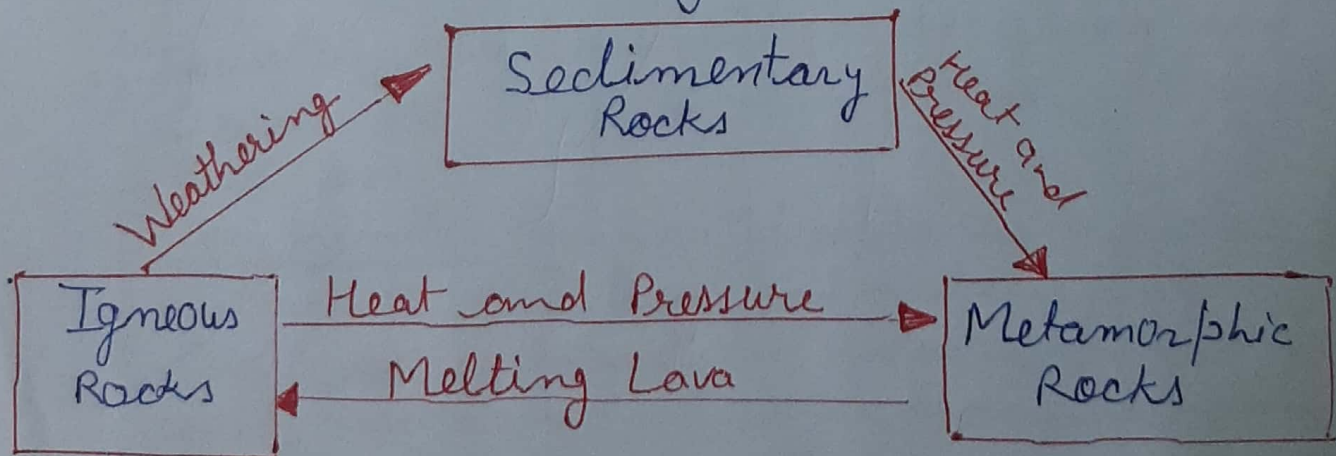 Sedimentary
Rocks
Weathering
Heat and
Pressure
Igneous
Rocks
Heat and Pressure
Melting Lava
Metamorphic
Rocks